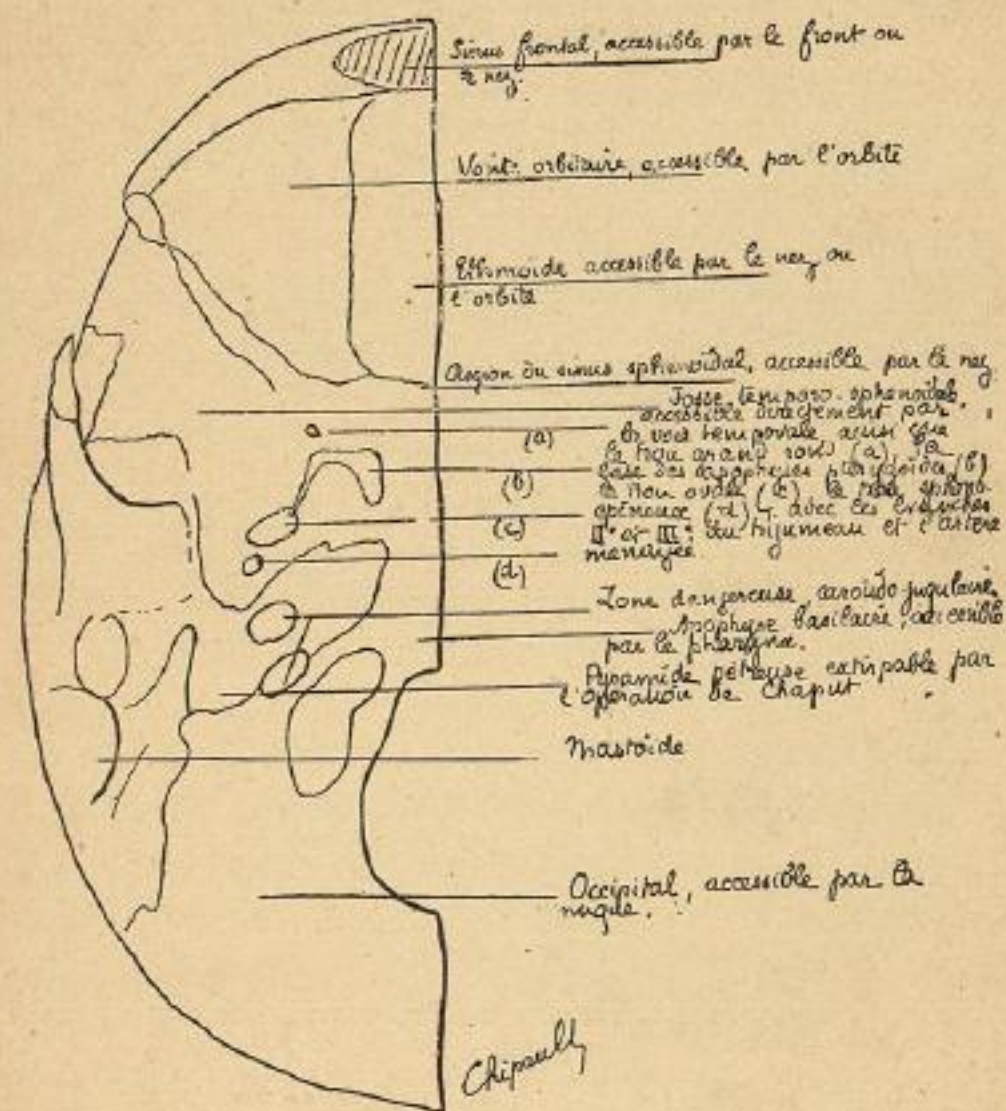 Sinus frontal, accessible par le front ou
le nez.
Voûte orbitaire, accessible par l'orbite
Ethmoïde accessible par le nez ou
l'orbite
Région du sinus sphénoïdal, accessible par le nez
Fosse temporo-sphénoidale,
accessible directement par
(a) la voie temporale, ainsi que
le trou grand rond (a), la
(b) base des apophyses ptérygoïdes (b)
le trou ovale (c) le trou sphéno-
(c) épineux (d), avec les branches
II° et III° du trijumeau et l'artère
(d) méningée
Zone dangereuse, carotido-jugulaire.
Apophyse basilaire, accessible
par le pharynx.
Pyramide pétreuse extirpable par
l'opération de Chaput.
Mastoïde
Occipital, accessible par la
nuque.
Chipault